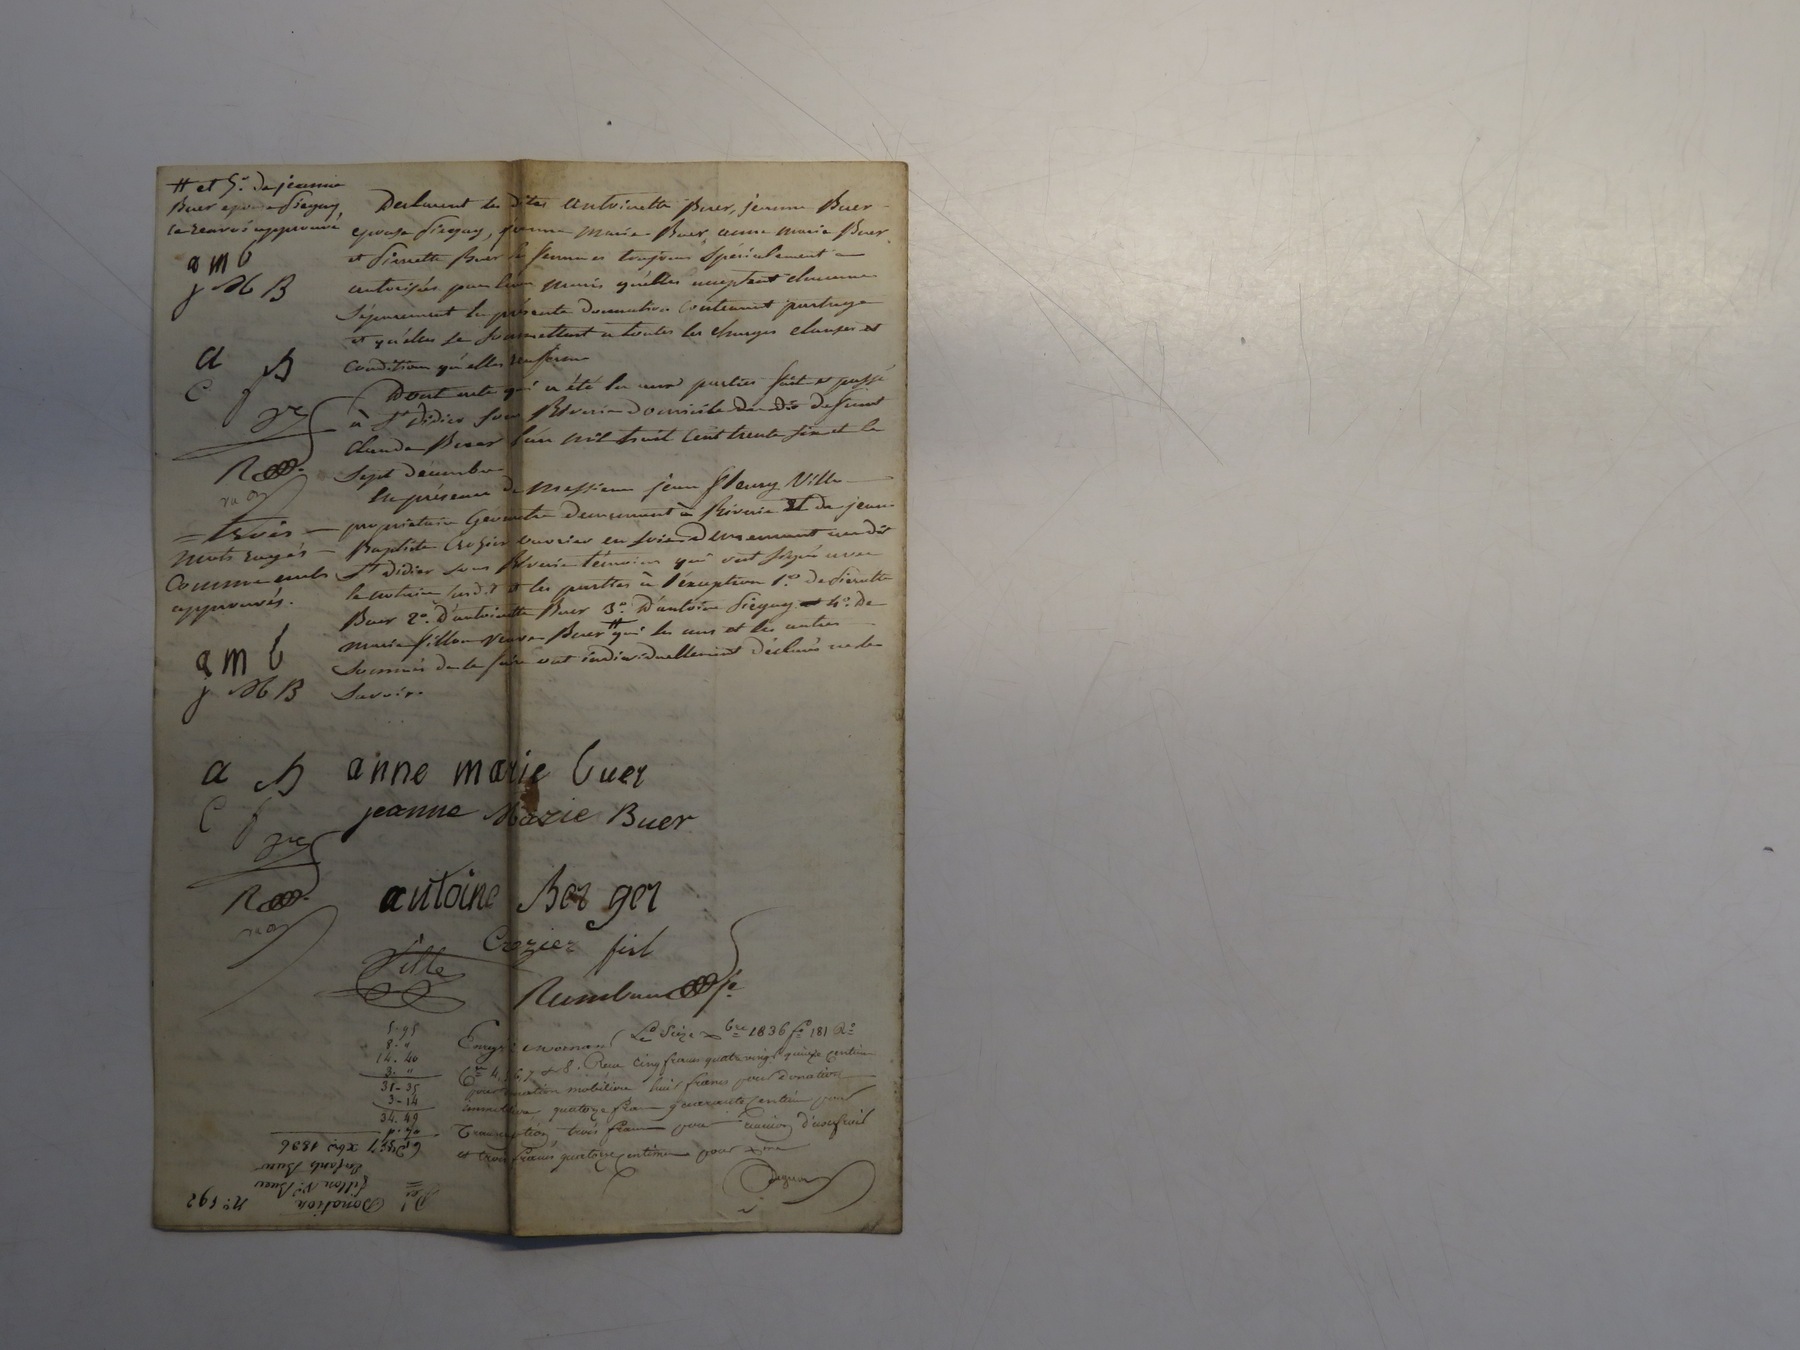 # et 5.° de jeanne
Buer épouse Piegay,
le renvoi approuvé
a m b
j M B
a B
C
Declarent les dites antoinette Buer, jeanne Buer
epouse Piegay, jeanne marie Buer, anne marie Buer
et Pierrette Buer les femmes toujours spécialement
autorisées par leurs maris qu'elles acceptent chacune
séparément la présente donnation contenant partage
et qu'elles se soumettent a toutes les charges clauses et
condition qu'elles renferme
Dont acte qui a été lu aux parties fait et passé
à St Didier sous Riverie domicile du dit defunt
Claude Buer l'an mil huit cent trente six et le
Sept décembre.
En présence de Messieurs jean fleury Ville
propriétaire Géomètre demeurant à Riverie et de jean
Baptiste Crozier ouvrier en soie demeurant au dit
St Didier sous Riverie témoins qui ont signé avec
le notaire susd.t et les parties à l'éxception 1.° de Pierrette
Buer 2.° d'antoinette Buer 3.° d'antoine Piegay et 4.° de
marie fillon veuve Buer # qui les uns et les autres
sommés de le faire ont individuellement déclaré ne le
Savoir.
= trois =
mots rayés
comme nuls
approuvés.
a m b
j M B
a B
C
anne marie buer
jeanne Marie Buer
antoine Berger
Crozier fisl
Ville
5-95
8. "
14. 40
3. "
31-35
3-14
34. 49
Le Seize Xbre 1836 f° 181 R°
Cs 4, 5, 6, 7 et 8. Reçu cinq francs quatre vingt quinze centimes
pour donation mobilière huit francs pour donation
immobilière, quatorze francs quarante centimes pour
Transcription, trois francs pour réunion d'usufruit
et trois francs quatorze centimes pour Xème
7 xbre 1836
Donation
fillon Ve Buer
Enfants Buer
N° 592